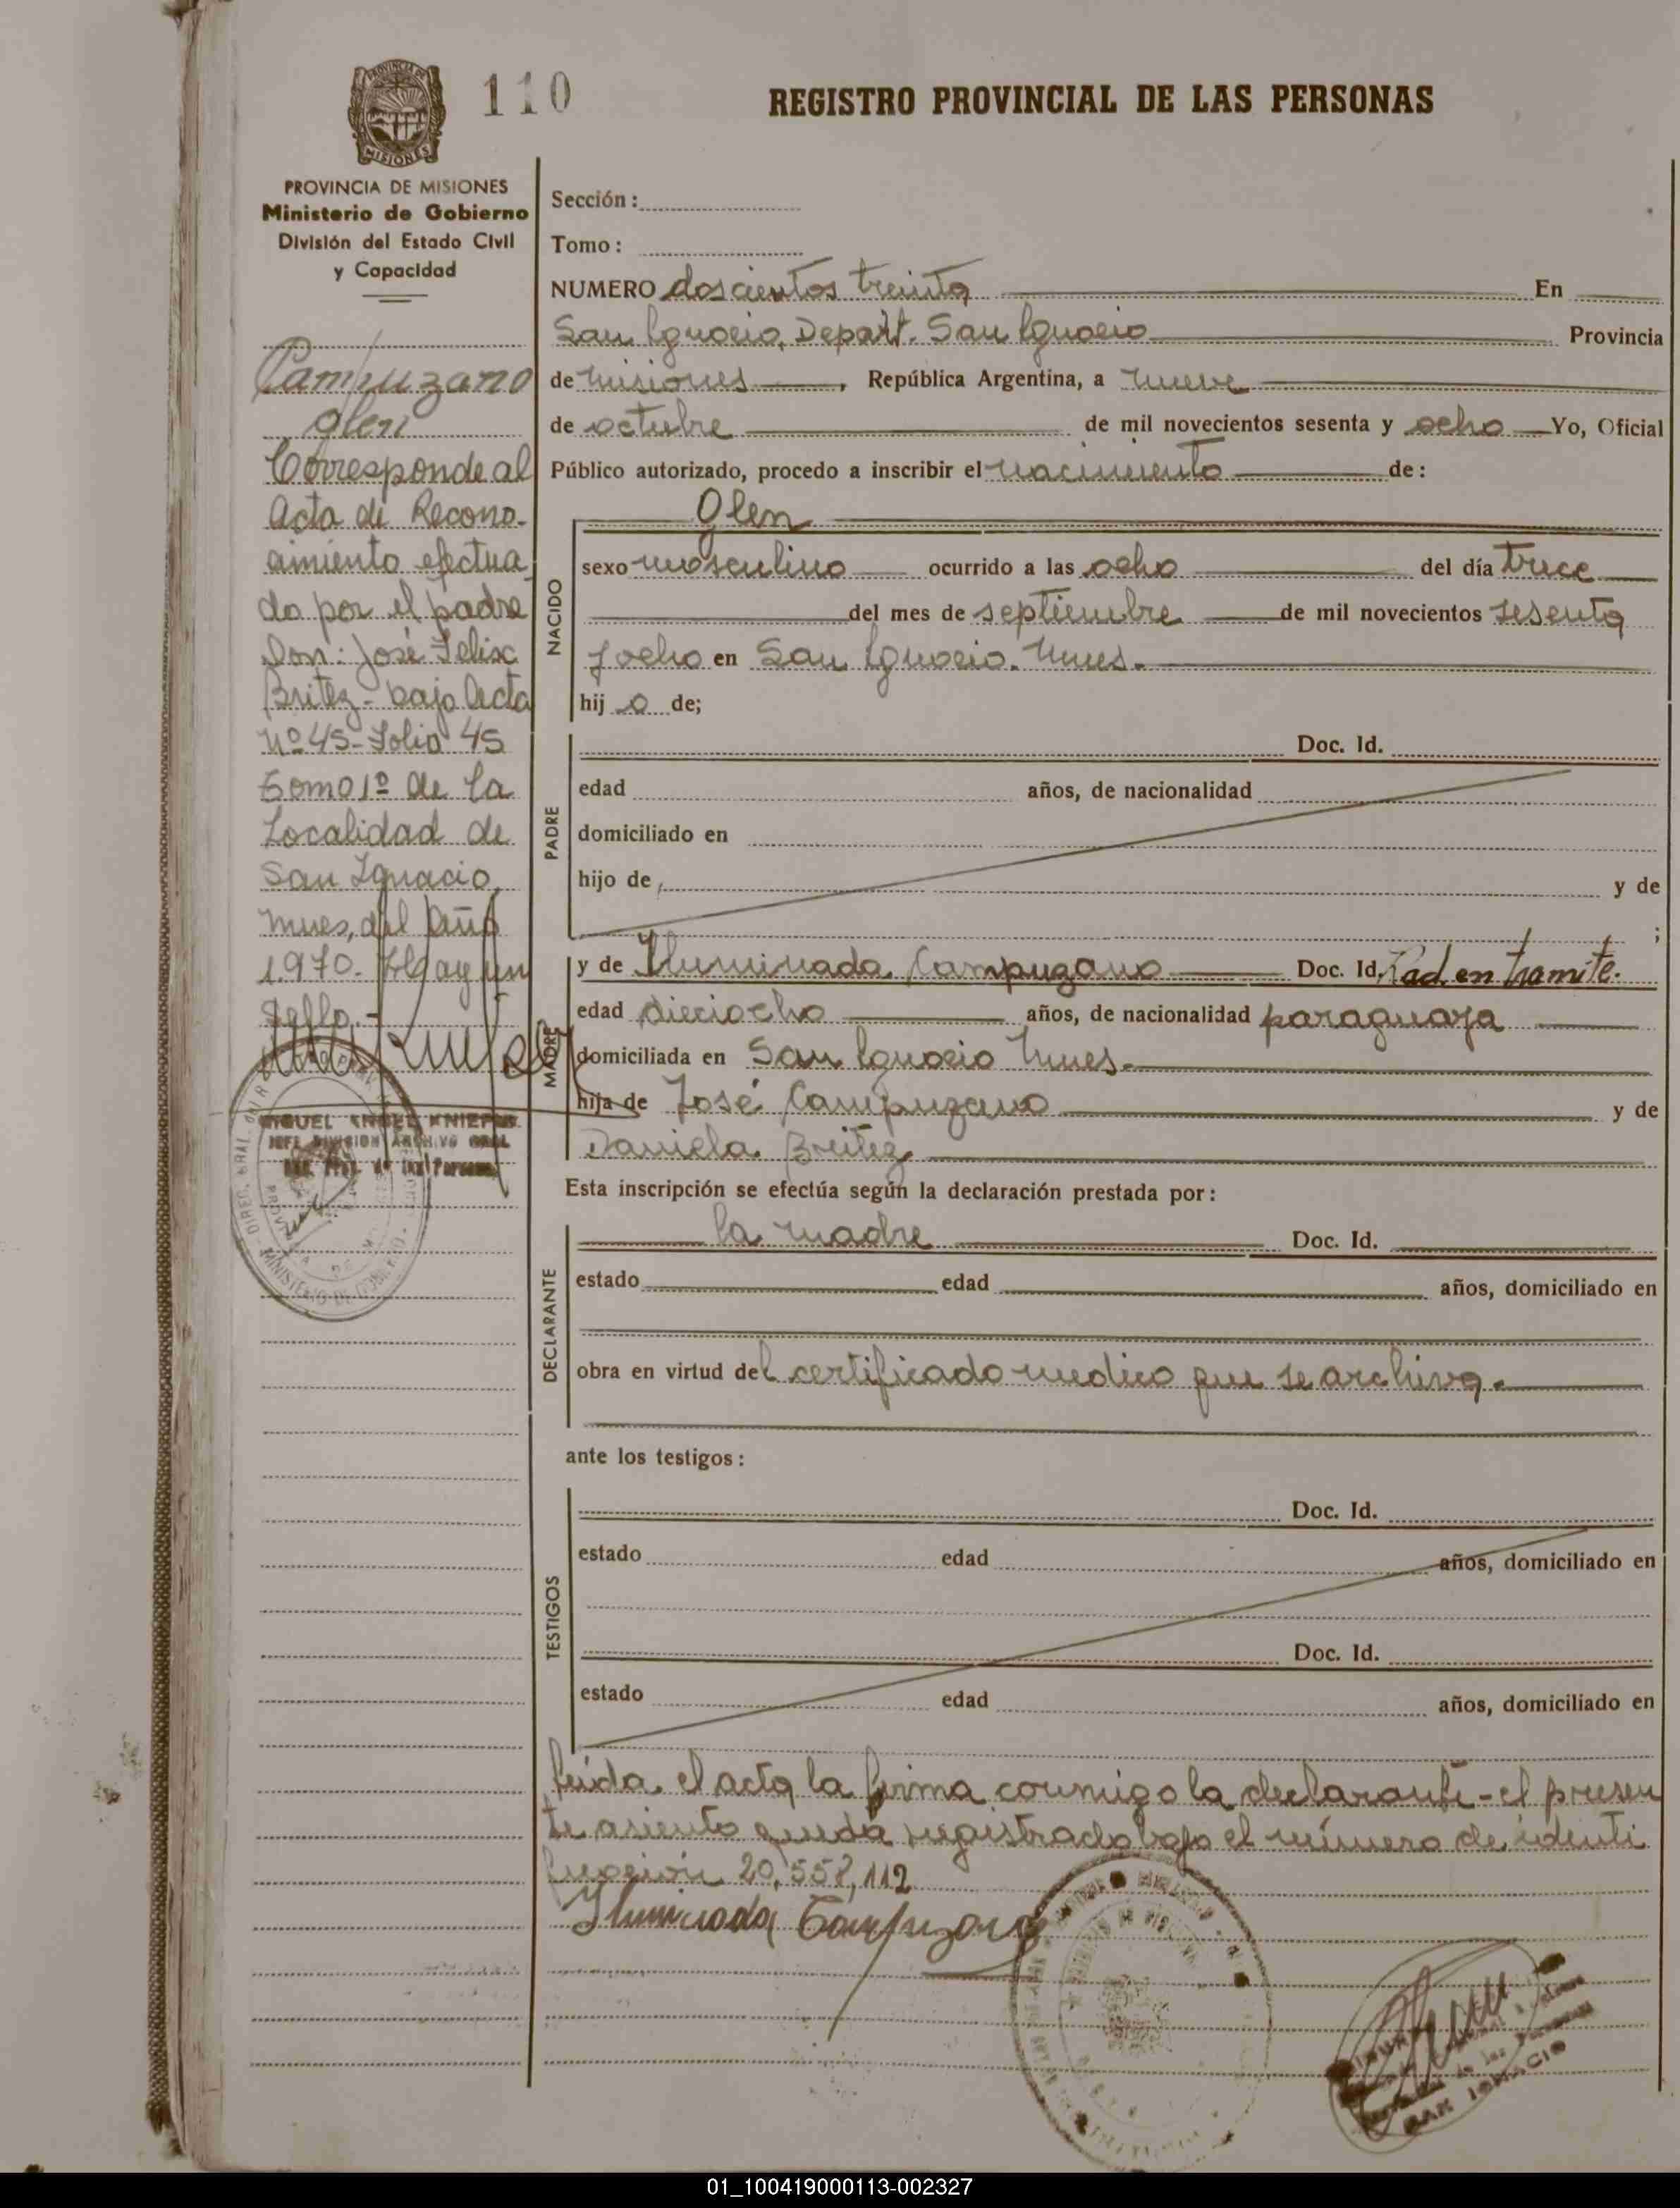 110
REGISTRO PROVINCIAL DE LAS PERSONAS
PROVINCIA DE MISIONES
Ministerio de Gobierno
División del Estado Civil
y Capacidad
Campuzano
Glen
Corresponde al
Acta de Recono-
cimiento efectua
do por el padre
Don: José Felix
Britez - bajo Acta
Nº 45 - Folio 45
Tomo 1º de la
Localidad de
San Ignacio,
Mnes, del Año
1.970. Hay un
Sello.-
MIGUEL ANGEL KNIEPER
JEFE DIVISION ARCHIVO GRAL
Reg. Prov. de las Personas
Sección:
Tomo:
NUMERO doscientos treinta En
San Ignacio, Depart. San Ignacio Provincia
de Misiones, República Argentina, a nueve
de octubre de mil novecientos sesenta y ocho Yo, Oficial
Público autorizado, procedo a inscribir el nacimiento de:
NACIDO
Glen
sexo masculino ocurrido a las ocho del día trece
del mes de septiembre de mil novecientos sesenta
y ocho en San Ignacio. Mnes.
hijo de;
PADRE
Doc. Id.
edad años, de nacionalidad
domiciliado en
hijo de y de
;
MADRE
y de Iluminada Campuzano Doc. Id. Rad. en tramite.
edad dieciocho años, de nacionalidad paraguaya
domiciliada en San Ignacio Mnes.
hija de José Campuzano y de
Daniela Britez
Esta inscripción se efectúa según la declaración prestada por:
DECLARANTE
la madre Doc. Id.
estado edad años, domiciliado en
obra en virtud del certificado medico que se archiva.
ante los testigos:
TESTIGOS
Doc. Id.
estado edad años, domiciliado en
Doc. Id.
estado edad años, domiciliado en
leida el acta la firma conmigo la declarante - el presen
te asiento queda registrado bajo el número de identi
ficación 20,558,112
Iluminada Campuzano
SAN IGNACIO
01_100419000113-002327